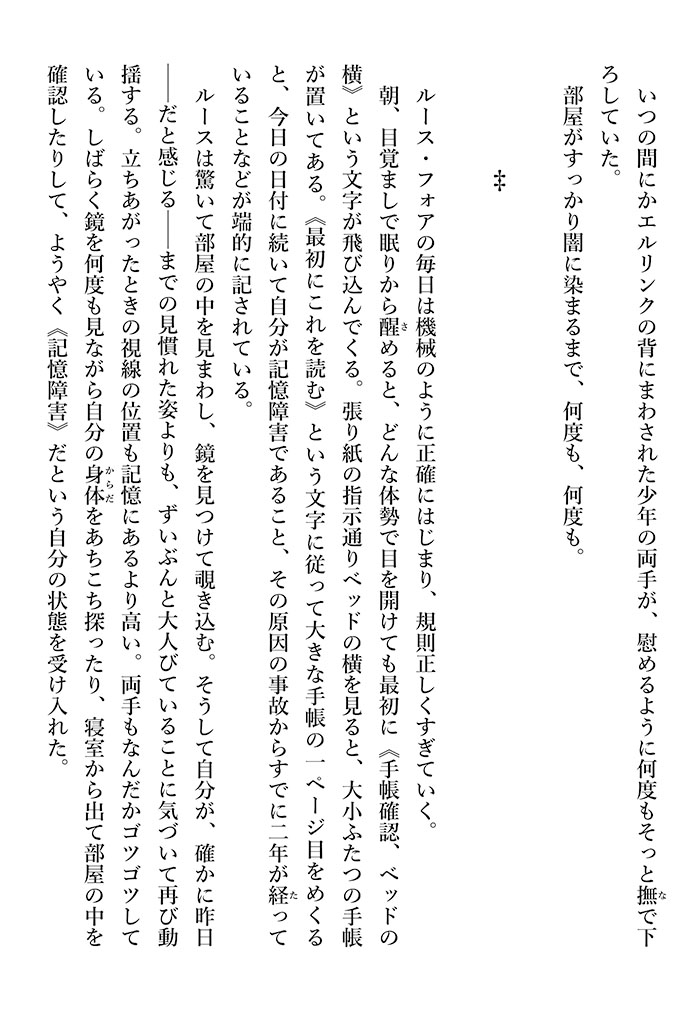 いつの間にかエルリンクの背にまわされた少年の両手が、慰めるように何度もそっと撫で下
ろしていた。
部屋がすっかり闇に染まるまで、何度も、何度も。
‡
ルース・フォアの毎日は機械のように正確にはじまり、規則正しくすぎていく。
朝、目覚ましで眠りから醒めると、どんな体勢で目を開けても最初に《手帳確認、ベッドの
横》という文字が飛び込んでくる。張り紙の指示通りベッドの横を見ると、大小ふたつの手帳
が置いてある。《最初にこれを読む》という文字に従って大きな手帳の一ページ目をめくる
と、今日の日付に続いて自分が記憶障害であること、その原因の事故からすでに二年が経って
いることなどが端的に記されている。
ルースは驚いて部屋の中を見まわし、鏡を見つけて覗き込む。そうして自分が、確かに昨日
――だと感じる――までの見慣れた姿よりも、ずいぶんと大人びていることに気づいて再び動
揺する。立ちあがったときの視線の位置も記憶にあるより高い。両手もなんだかゴツゴツして
いる。しばらく鏡を何度も見ながら自分の身体をあちこち探ったり、寝室から出て部屋の中を
確認したりして、ようやく《記憶障害》だという自分の状態を受け入れた。